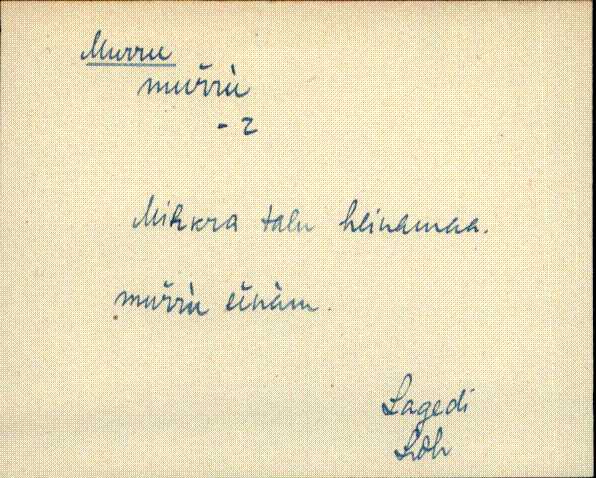 Murru
muŕrù
- 2
Mihkra talu heinamaa.
muŕrù einàm.
Lagedi